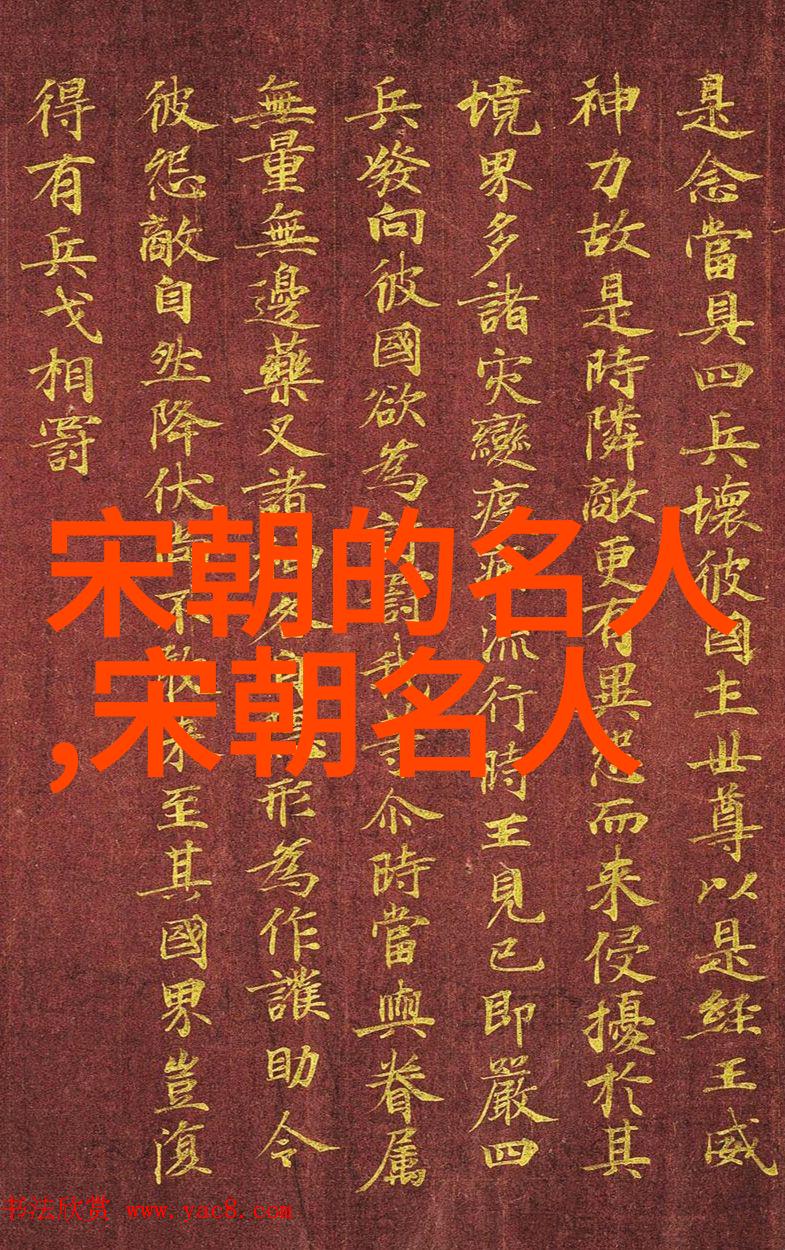 是念當具四兵壞彼國土世尊以是經王威
神力故是時隣敵更有異怨而来侵擾於其
境界多諸灾變疫病流行時王見已即嚴四
兵發向彼國欲為討罰我等尒時當與眷属
無量無邊藥叉諸形為作護助令
彼怨敵自然降伏尚不敢来至其國界豈復
得有兵戈相罸
宋朝的名人
,宋朝名人
书法欣赏 www.yac8.com